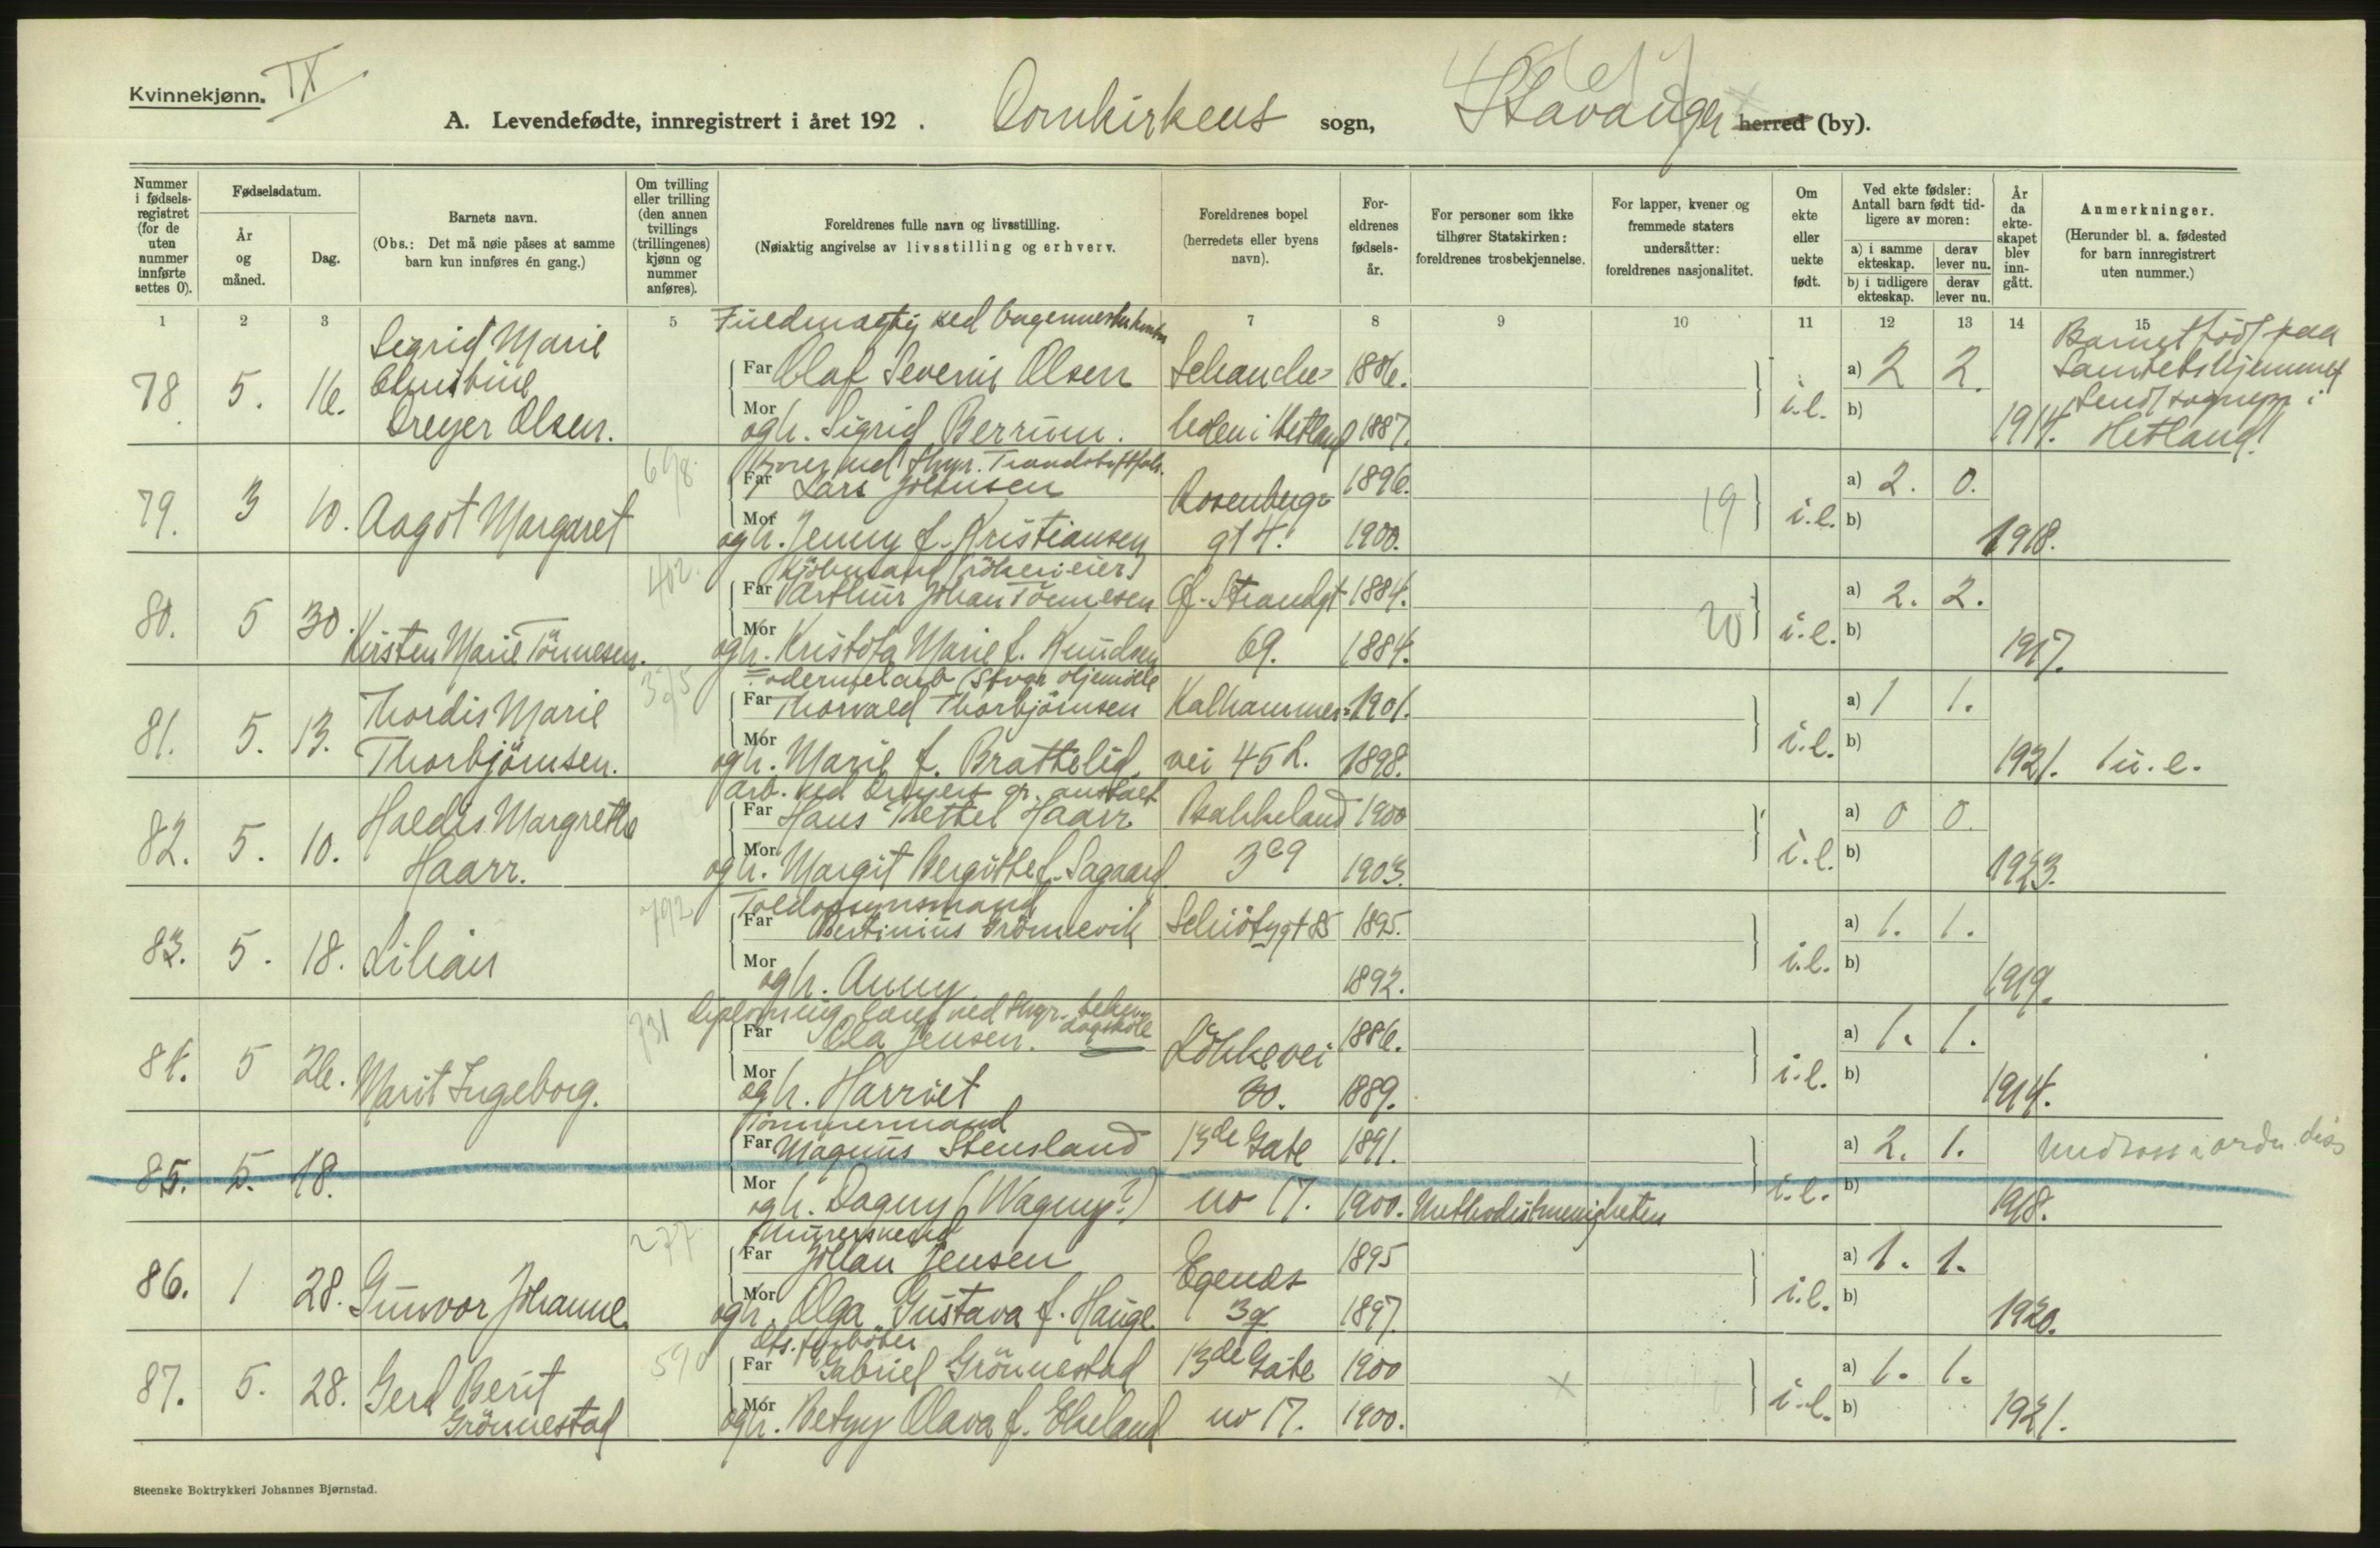 Kvinnekjønn. IX
A. Levendefødte, innregistrert i året 192 . Domkirkens sogn, Stavanger herred (by).
Nummer i fødsels-registret (for de uten nummer innførte settes 0).
Fødselsdatum.
År og måned.
Dag.
Barnets navn.
(Obs.: Det må nøie påses at samme barn kun innføres én gang.)
Om tvilling eller trilling (den annen tvillings (trillingenes) kjønn og nummer anføres).
Foreldrenes fulle navn og livsstilling.
(Nøiaktig angivelse av livsstilling og erhverv.
Foreldrenes bopel (herredets eller byens navn).
For-eldrenes fødsels-år.
For personer som ikke tilhører Statskirken: foreldrenes trosbekjennelse.
For lapper, kvener og fremmede staters undersåtter: foreldrenes nasjonalitet.
Om ekte eller uekte født.
Ved ekte fødsler: Antall barn født tid-ligere av moren:
a) i samme ekteskap. derav lever nu.
b) i tidligere ekteskap. derav lever nu.
År da ekte-skapet blev inn-gått.
Anmerkninger.
(Herunder bl. a. fødested for barn innregistrert uten nummer.)
1 2 3 5 7 8 9 10 11 12 13 14 15
78 5. 16. Sigrid Marie
Dreyer Olsen.
Far Olaf Severin Olsen 1886. a) 2 2.
Mor og h. Sigrid Berrum. i Hetland 1887. i.e. b) 1914.
Barnet født paa
Hetland!
698
79. 3 10. Aagot Margaret
Far Lars Johnsen Rosenberg- 1896. a) 2. 0.
Mor og h. Jenny f. Kristiansen gt 4. 1900. 19 i.e. b) 1918.
402.
80. 5 30. Kirsten Marie Tönnesen.
Far Arthur Johan Tönnesen Ø. Strandgt 1884. a) 2. 2.
Mor og h. Kristofa Marie f. Knudsen 69. 1884. 20 i.e. b) 1917.
81. 5. 13. Thordis Marie
Thorbjörnsen.
Far Thorvald Thorbjörnsen Kalhammer- 1901. a) 1 1.
Mor og h. Marie f. Brattelid. vei 45 b. 1898. i.e. b) 1921. 1 u.e.
Arb. ved Dreyers gr. anstalt
82. 5. 10. Haldis Margrethe
Haarr.
Far Hans Kettel Haarr Bakkeland 1900 a) 0 0.
Mor og h. Margit Bergitte f. Sagaard. 1903. i.e. b) 1923.
Toldopsynsmand
83. 5. 18. Lilian
Far Bertinius 1895. a) 1. 1.
Mor og h. Anny 1892. i.e. b) 1919.
731
84. 5 26. Marit Ingeborg.
Far Ola Jensen. Lökkevei 1886. a) 1. 1.
Mor og h. Harriet 30. 1889. i.e. b) 1914.
Tömmermand
85. 5. 18.
Far Magnus Stensland 13de Gate 1891. a) 2. 1.
Mor og h. Dagny (Wagny?) no 17. 1900. Methodistmenigheten i.e. b) 1918.
277
Murersvend
86. 1 28. Gunvor Johanne
Far Johan Jensen Egenes 1895 a) 1. 1.
Mor og h. Olga Gustava f. Hauge 1897. i.e. b) 1920.
590
87. 5. 28. Gerd Berit
Grönnestad
Far Gabriel Grönnestad 13de Gate 1900 a) 1. 1.
Mor og h. Betzy Olava f. Ekeland no 17. 1900. i.e. b) 1921.
Steenske Boktrykkeri Johannes Bjørnstad.